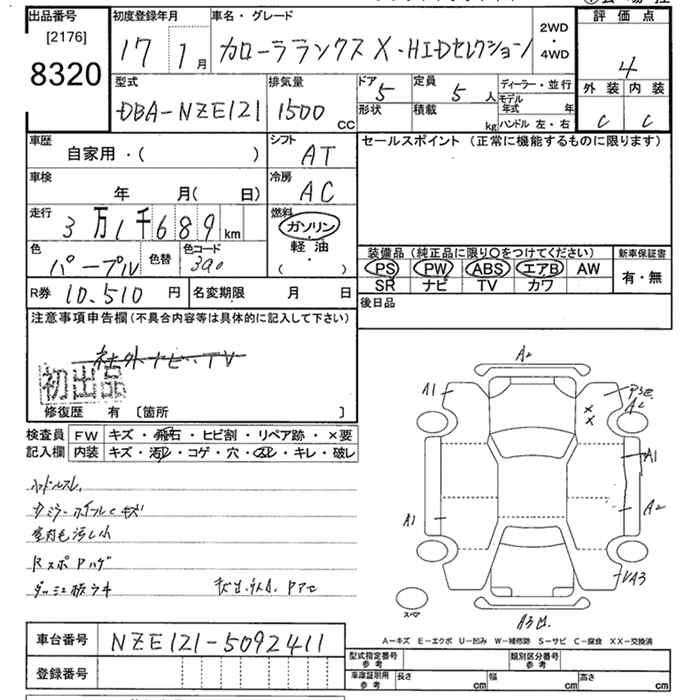 出品番号 初度登録年月 車名・グレード 2WD・4WD 評価点
[2176]
8320 17 1月 カローラランクス X・HIDセレクション 4
型式 排気量 ドア 定員 ディーラー・並行 外装 内装
DBA-NZE121 1500 CC 5 5人 モデル年式 年 C C
形状 積載 kg ハンドル 左・右
車歴 シフト セールスポイント (正常に機能するものに限ります)
自家用・( ) AT
車検 冷房
年 月( 日) AC
走行 燃料
3万1千689km ガソリン
色 色替 色コード 軽油 装備品 (純正品に限り○をつけてください) 新車保証書
パープル 390 ・( ) PS PW ABS エアB AW 有・無
SR ナビ TV カワ
R券 10,510 円 名変期限 月 日 後日品
注意事項申告欄(不具合内容等は具体的に記入して下さい)
社外ナビ・TV
初出品
修復歴 有 〔箇所 〕
検査員 FW キズ・飛石・ヒビ割・リペア跡・×要
記入欄 内装 キズ・汚れ・コゲ・穴・スレ・キレ・破レ
ハンドルスレ
ホイールキズ
室内も汚れ小
RスポPハゲ
A2
A1
A2
A1
A1
A2
A3
スペア
A-キズ E-エクボ U-凹み W-補修跡 S-サビ C-腐食 XX-交換済
車台番号 NZE121-5092411
登録番号
型式指定番号 参考 類別区分番号 参考
車庫証明用 参考 長さ cm 幅 cm 高さ cm